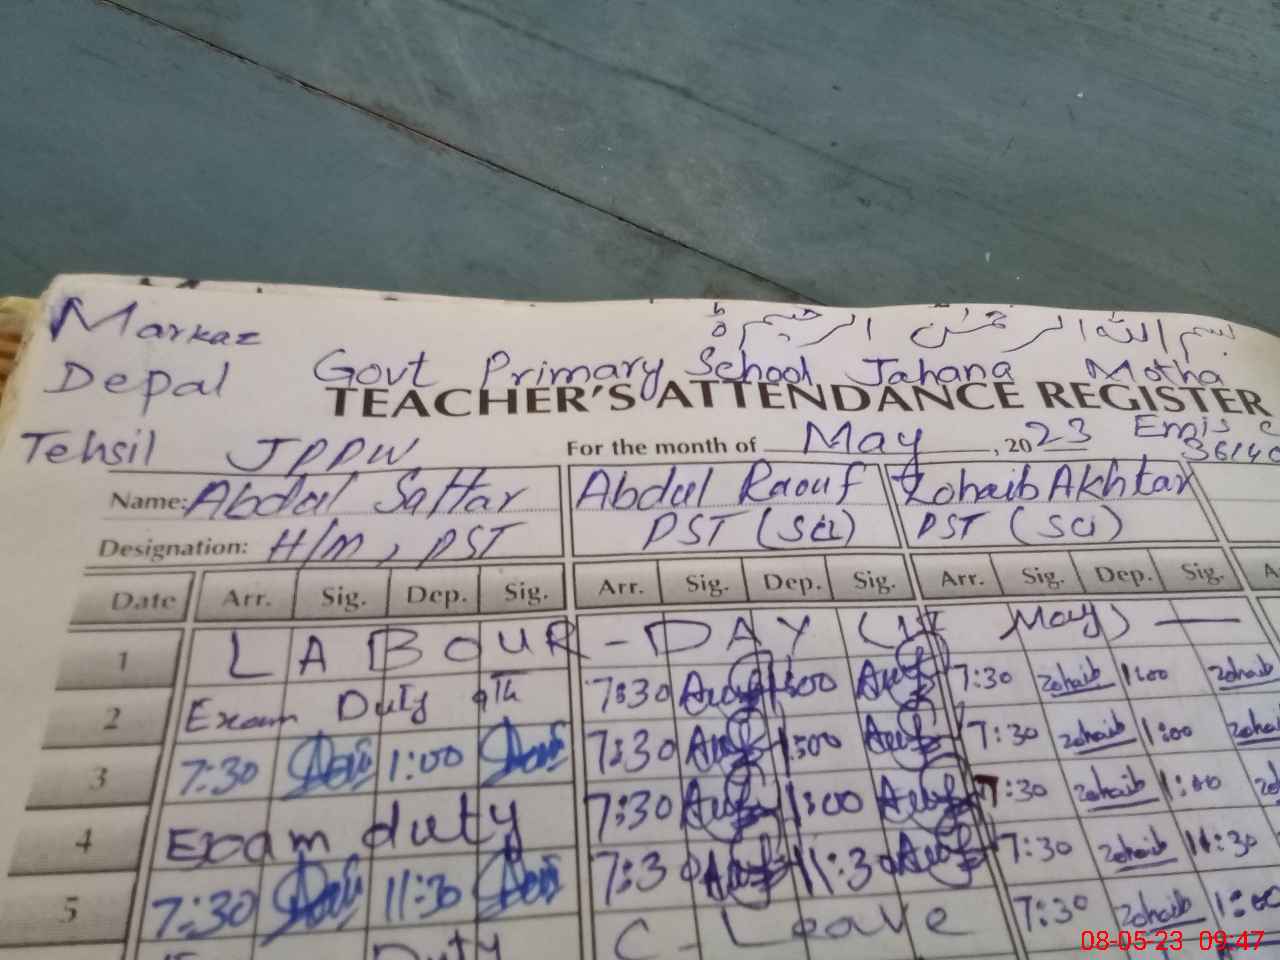 بسم الله الرحمن الرحيم
Markaz
Depal Govt Primary School Jahana Motha
TEACHER'S ATTENDANCE REGISTER
Tehsil JPPW For the month of May, 2023 Emis
Name: Abdul Sattar Abdul Raouf Zohaib Akhtar
Designation: H/m, PST PST (Sci) PST (SCi)
Date Arr. Sig. Dep. Sig. Arr. Sig. Dep. Sig. Arr. Sig. Dep. Sig.
1 LABOUR-DAY (1st May)
2 Exam Duty 9th 7:30 1:00 7:30 Zohaib 1:00 Zohaib
3 7:30 1:00 7:30 1:00 7:30 Zohaib 1:00 Zohaib
4 Exam duty 7:30 1:00 7:30 Zohaib 1:00
5 7:30 11:30 7:30 11:30 7:30 Zohaib 11:30
Duty C-Leave 7:30 Zohaib 1:00
08-05-23 09:47